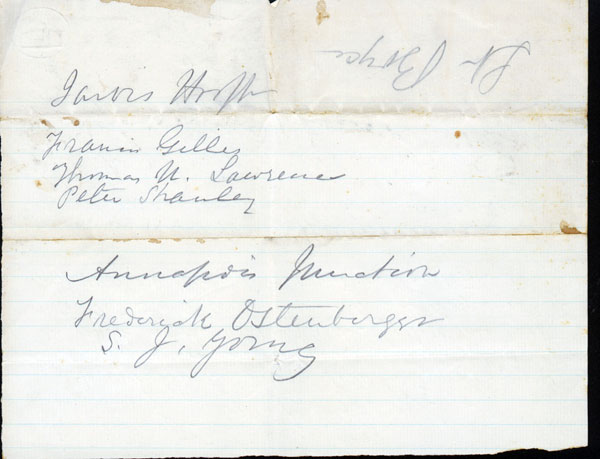 Jarvis Hosptl
Francis Gilles
Thomas N. Lawrence
Peter Stanley
Annapolis Junction
Frederick Ostenberger
S. J. Young